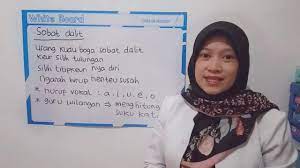 White Board
Sobat dalit
Urang kudu boga sobat dalit
Keur silih tulungan
Silih titipkeun nya diri
Ngarah hirup henteu susah
* huruf vokal : a, i, u, e, o
* guru wilangan ⇒ menghitung
suku kata